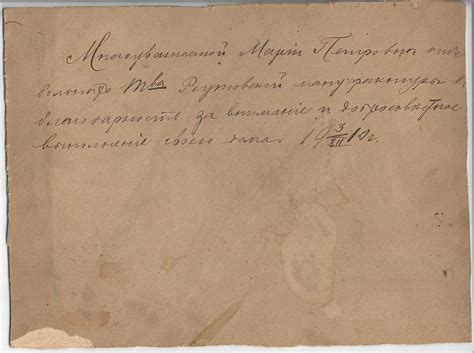 Многоуважаемой Маріи Петровны
Тва Реутовской мануфактуры
благодарность за вниманіе и добросовѣстное
выполненіе своего 19 3/XII 10 г.